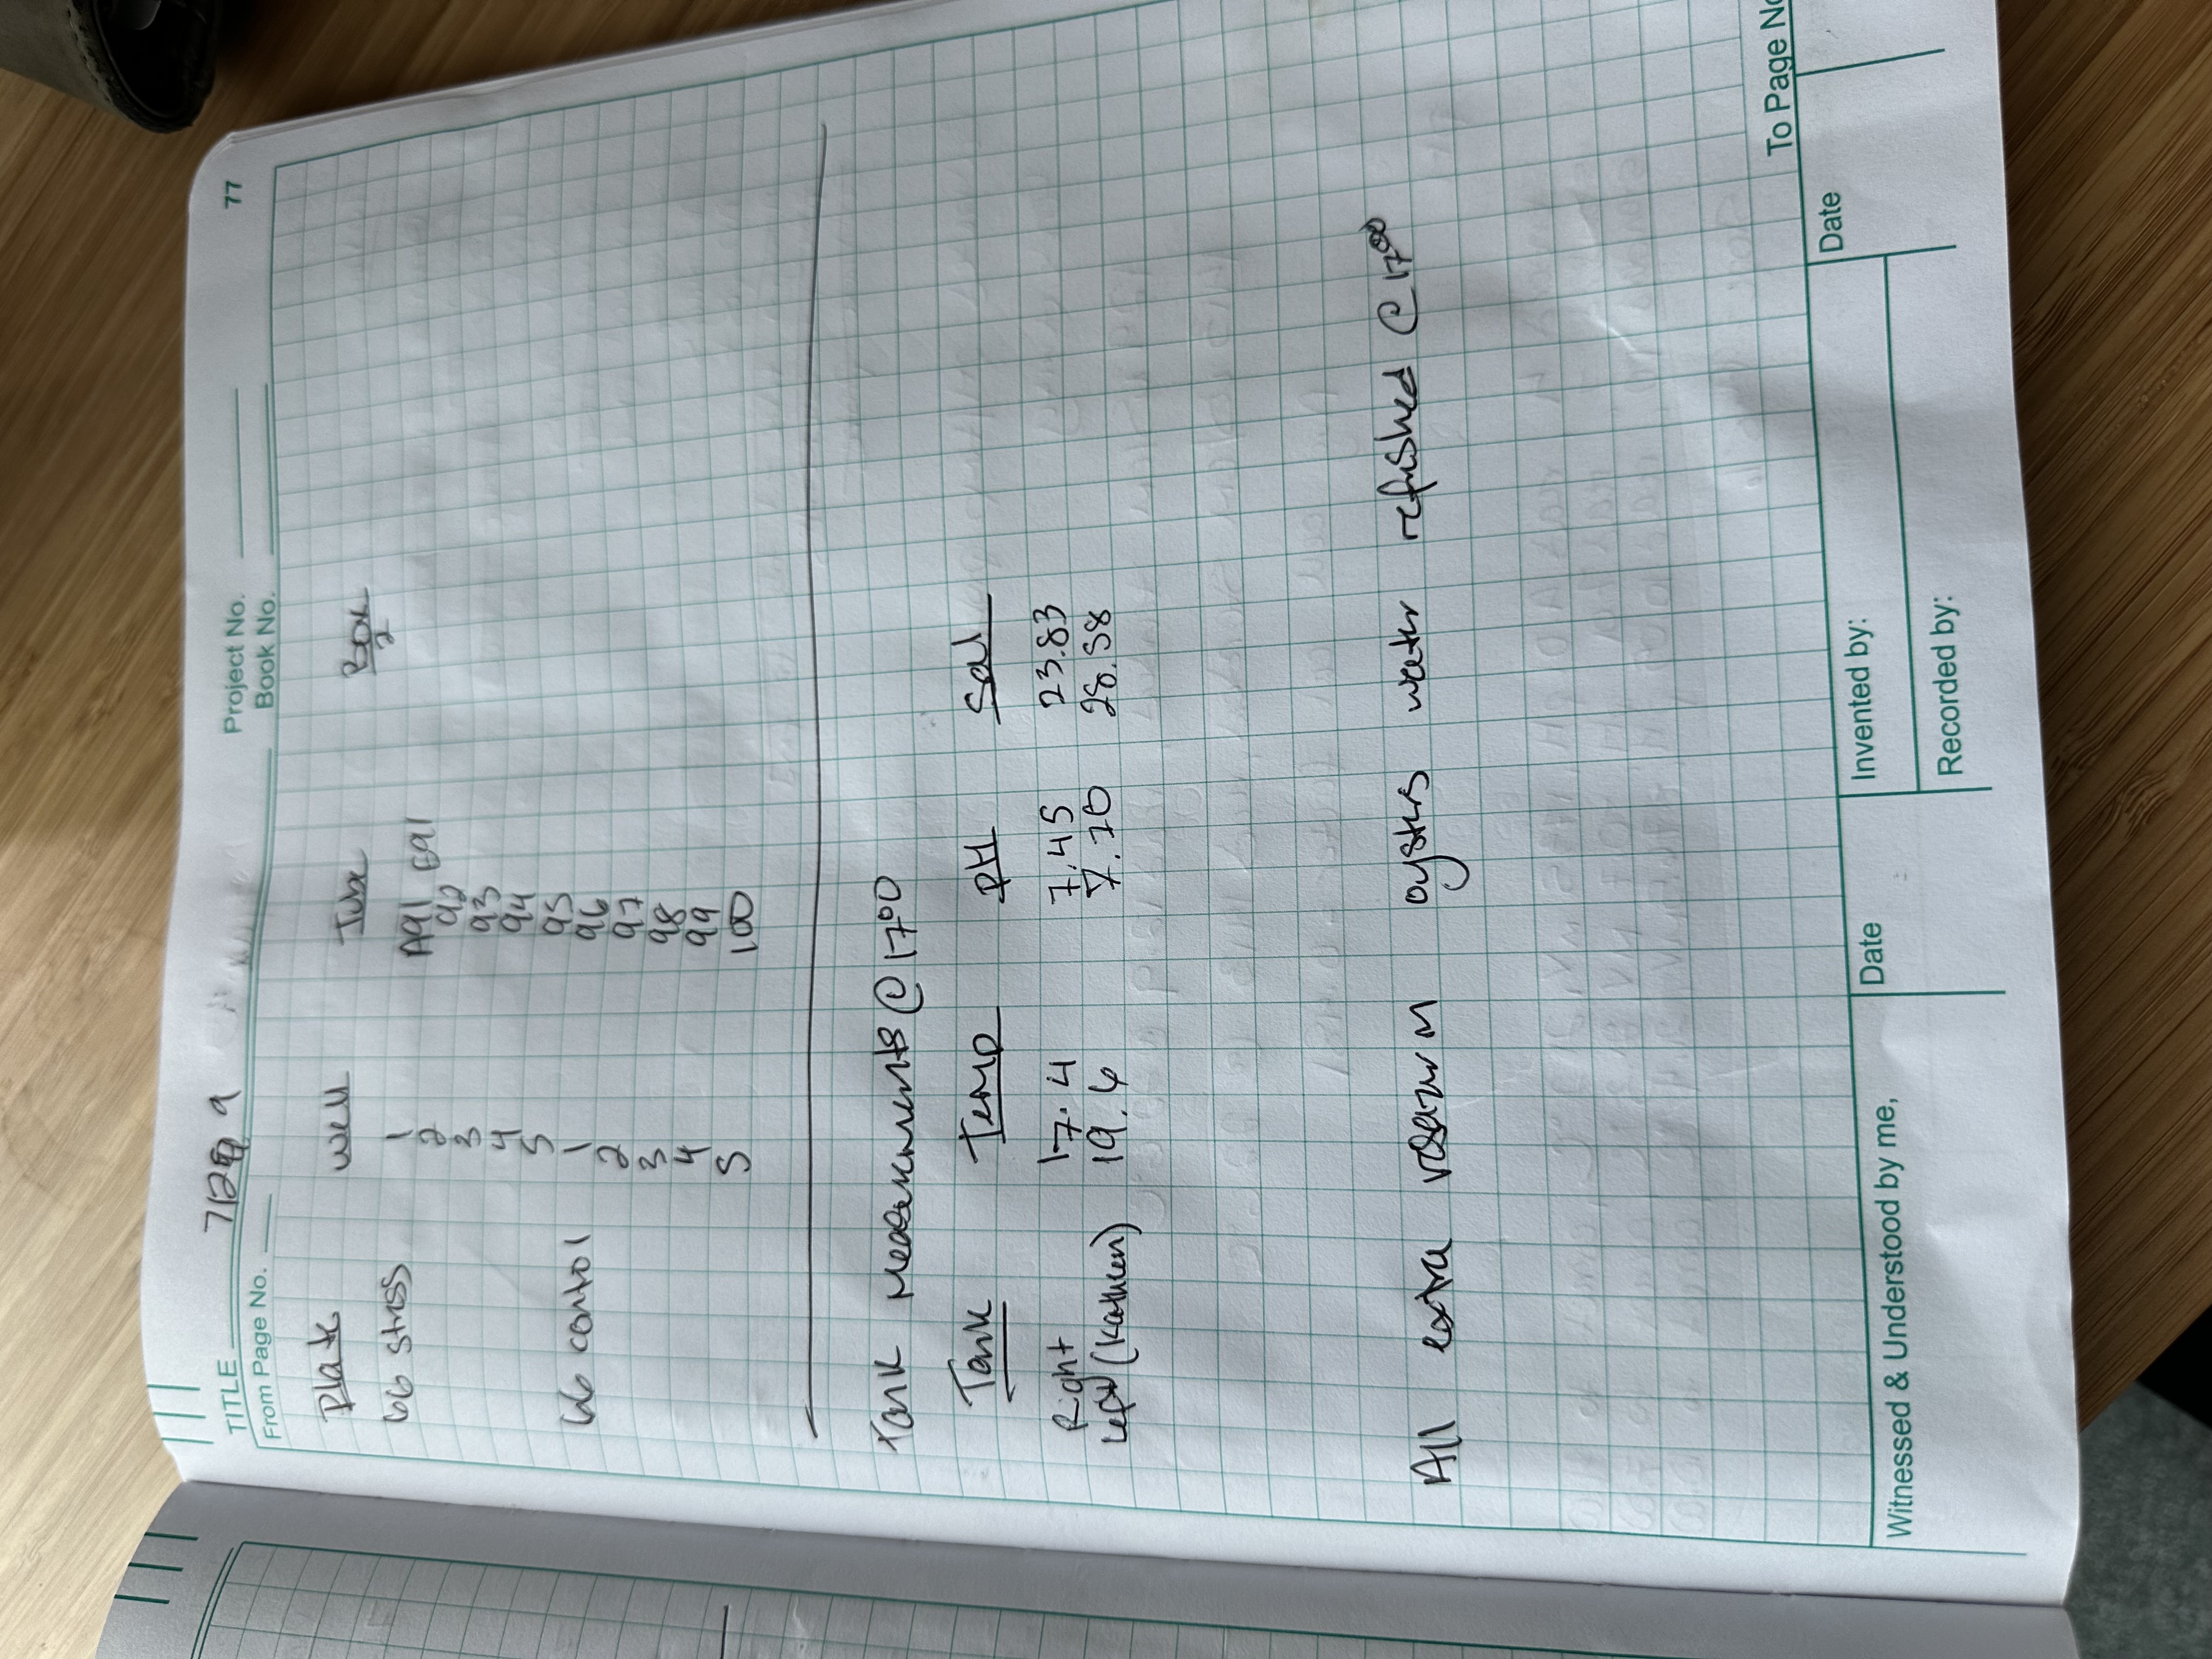 77
TITLE 7/29
Project No.
From Page No.
Book No.
Plate Well Tube Box
2
66 stress 1 A91 E91
2 92
3 93
4 94
5 95
66 control 1 96
2 97
3 98
4 99
5 100
Tank Measurements @ 1700
Tank Temp pH Sal
Right 17.4 7.45 23.83
Left (Kathleen) 19.6 7.70 28.58
All extra oysters water refreshed @ 1700
To Page No
Witnessed & Understood by me,
Date
Invented by:
Date
Recorded by: